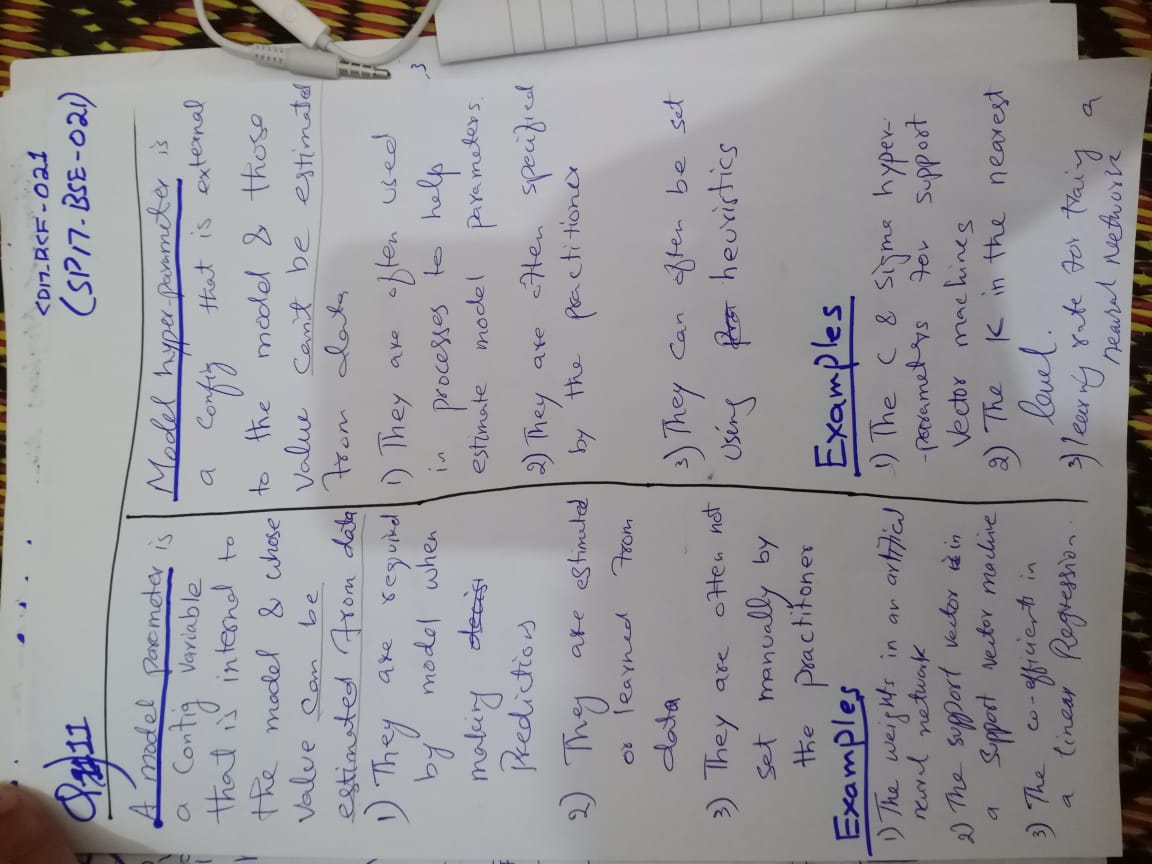 (SP17-BSE-021)
Q#11
A model parameter is
a Config Variable
that is internal to
the model & whose
Value Can be
estimated from data
1) They are required
by model when
making
Predictions
2) They are estimated
or learned from
data
3) They are often not
set manually by
the practitoner
Examples
1) The weights in an artifical
neural network
2) The support vector in
a support vector machine
3) The co-efficients in
a linear Regression.
Model hyper-parameter is
a config that is external
to the model & those
Value can't be estimated
from data,
1) They are often used
in processes to help
estimate model parameters.
2) They are often specified
by the practitioner
3) They can often be set
Using heuristics
Examples
1) The C & Sigma hyper-
-parameters for support
Vector machines
2) The K in the nearest
level.
3) learning rate for traing a
nearul neetwork